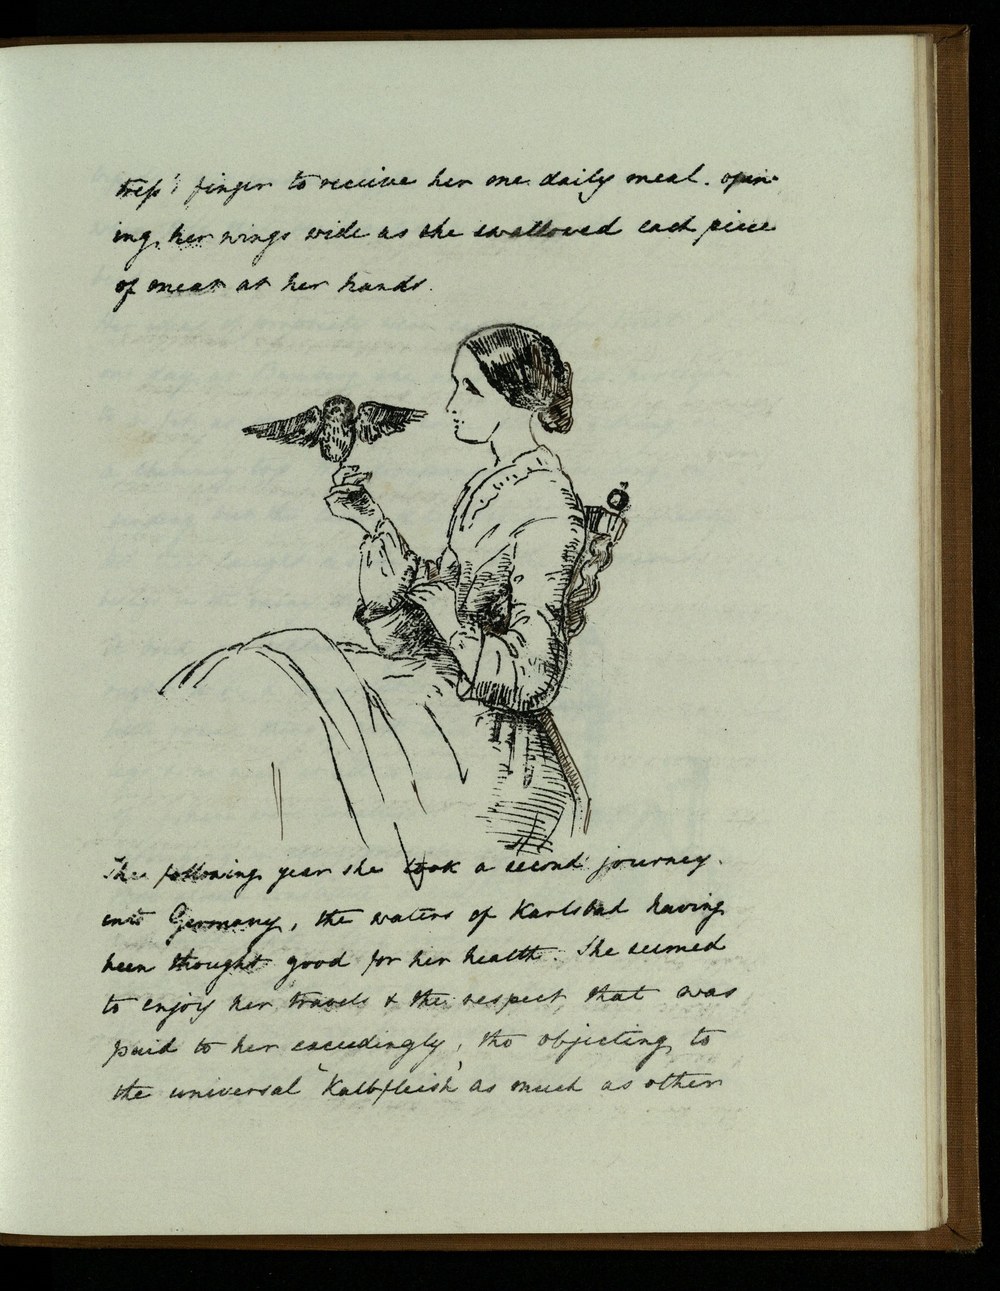 tress's finger to receive her one daily meal. open-
ing her wings wide as she swallowed each piece
of meat at her hands.
The following year she took a second journey
into Germany, the waters of Karlsbad having
been thought good for her health. She seemed
to enjoy her travels & the respect that was
paid to her exceedingly, tho objecting to
the universal 'Kalbfleish' as much as other